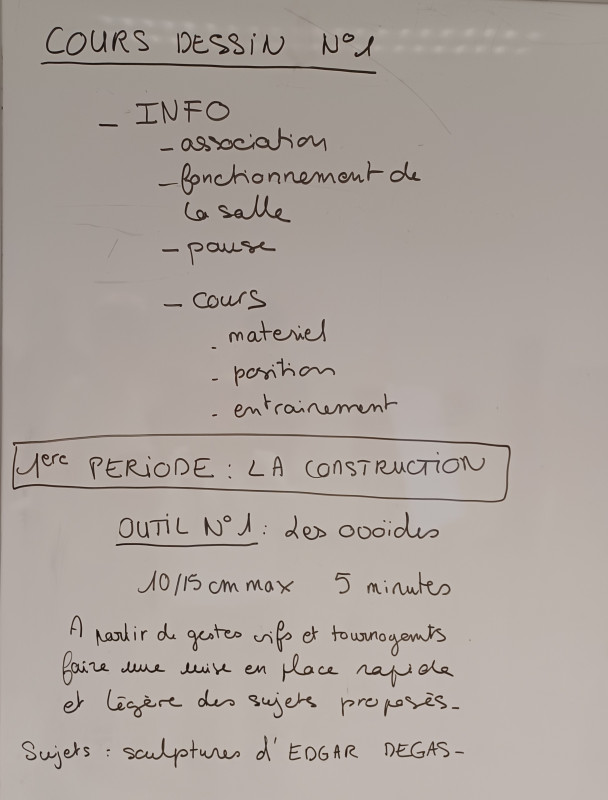 COURS DESSIN N°1
- INFO
- association
- fonctionnement de
la salle
- pause
- cours
. materiel
- position
- entrainement
1ere PERIODE : LA CONSTRUCTION
OUTIL N°1 : Les ovoïdes
10/15 cm max 5 minutes
A partir de gestes vifs et tournoyants
faire une mise en place rapide
et légère des sujets proposés-
Sujets : sculptures d'EDGAR DEGAS-